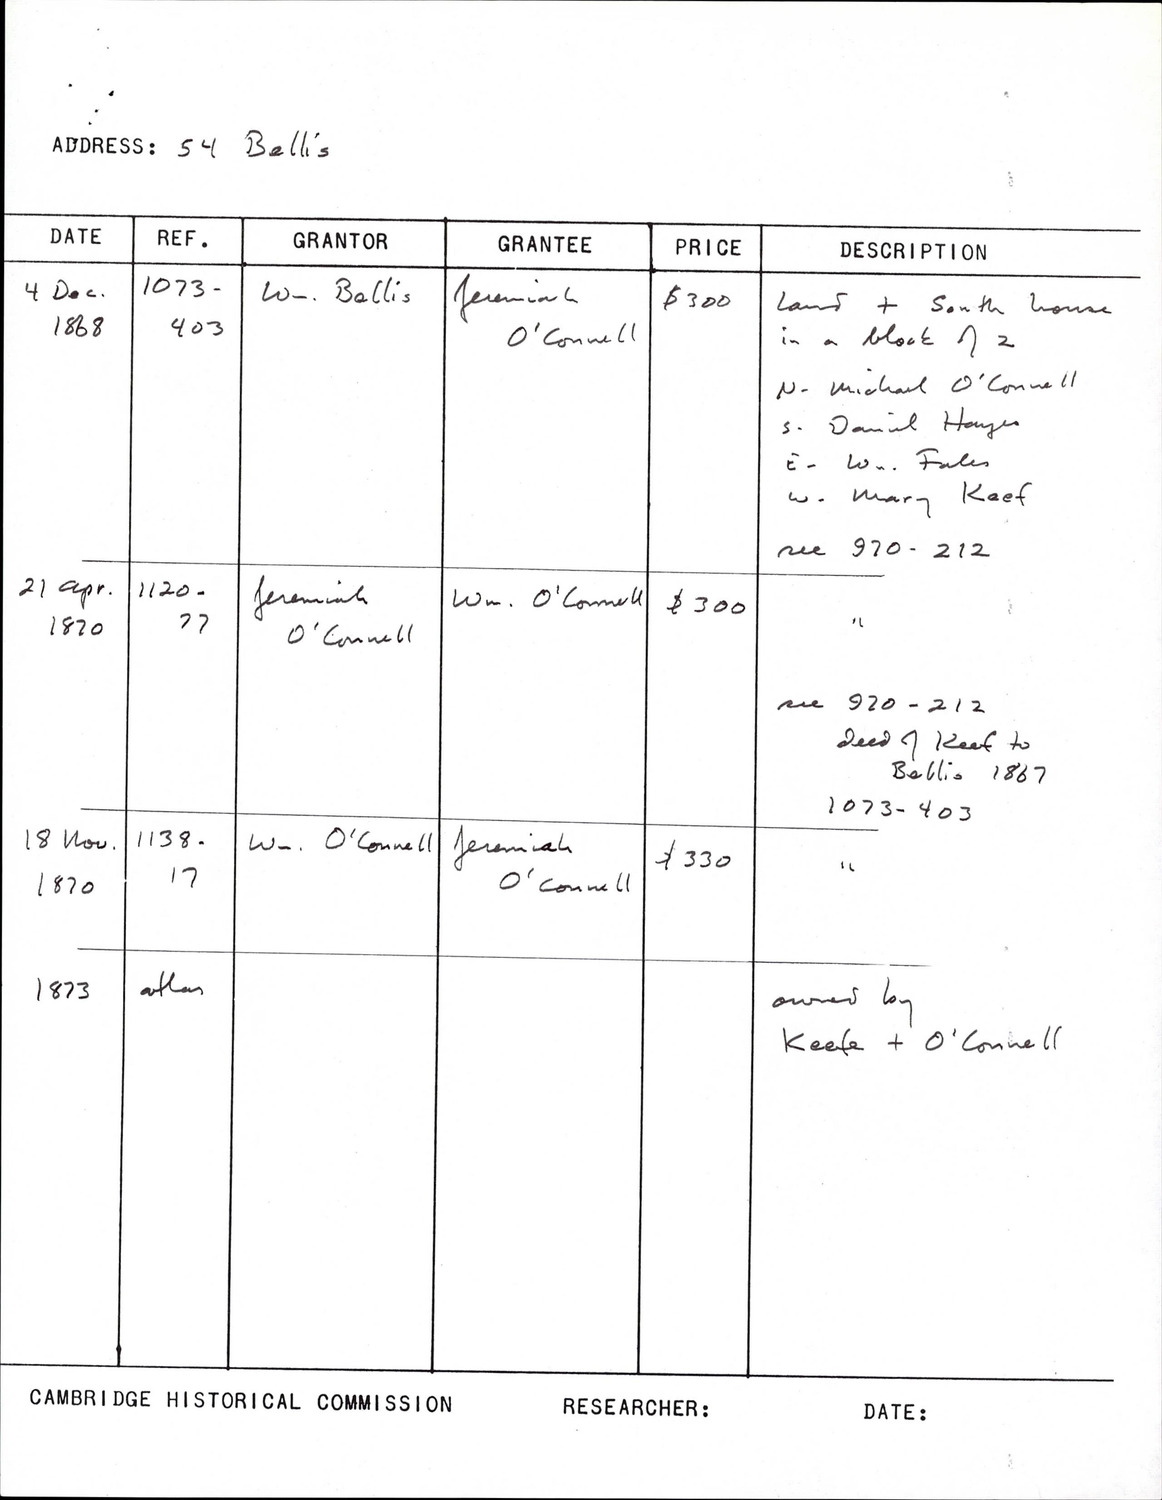 ADDRESS: 54 Bellis
DATE REF. GRANTOR GRANTEE PRICE DESCRIPTION
4 Dec. 1073- Wm. Bellis Jeremiah $300 Land + South house
1868 403 O'Connell in a block of 2
N- Michael O'Connell
S. Daniel Hayes
E- Wm. Fales
W. Mary Keef
see 970-212
21 Apr. 1120- Jeremiah Wm. O'Connell $300 "
1870 77 O'Connell
see 970-212
deed of Keef to
Bellis 1867
1073-403
18 Nov. 1138- Wm. O'Connell Jeremiah $330 "
1870 17 O'Connell
1873 atlas owned by
Keefe + O'Connell
CAMBRIDGE HISTORICAL COMMISSION RESEARCHER: DATE: